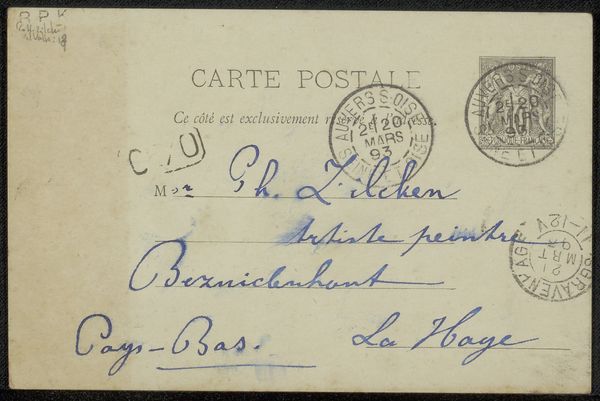 R P K
CARTE POSTALE
Ce côté est exclusivement
AUVERS S-OISE
2E 20
MARS
93
SEINE ET OISE
AUVERS S-OISE
2E 20
MARS
SEINE ET OISE
Mor Ph. Zilcken
Artiste peintre
Bezuidenhout
La Haye
Pays-Bas.
'S GRAVENHAGE
21
MRT
93
11-12V